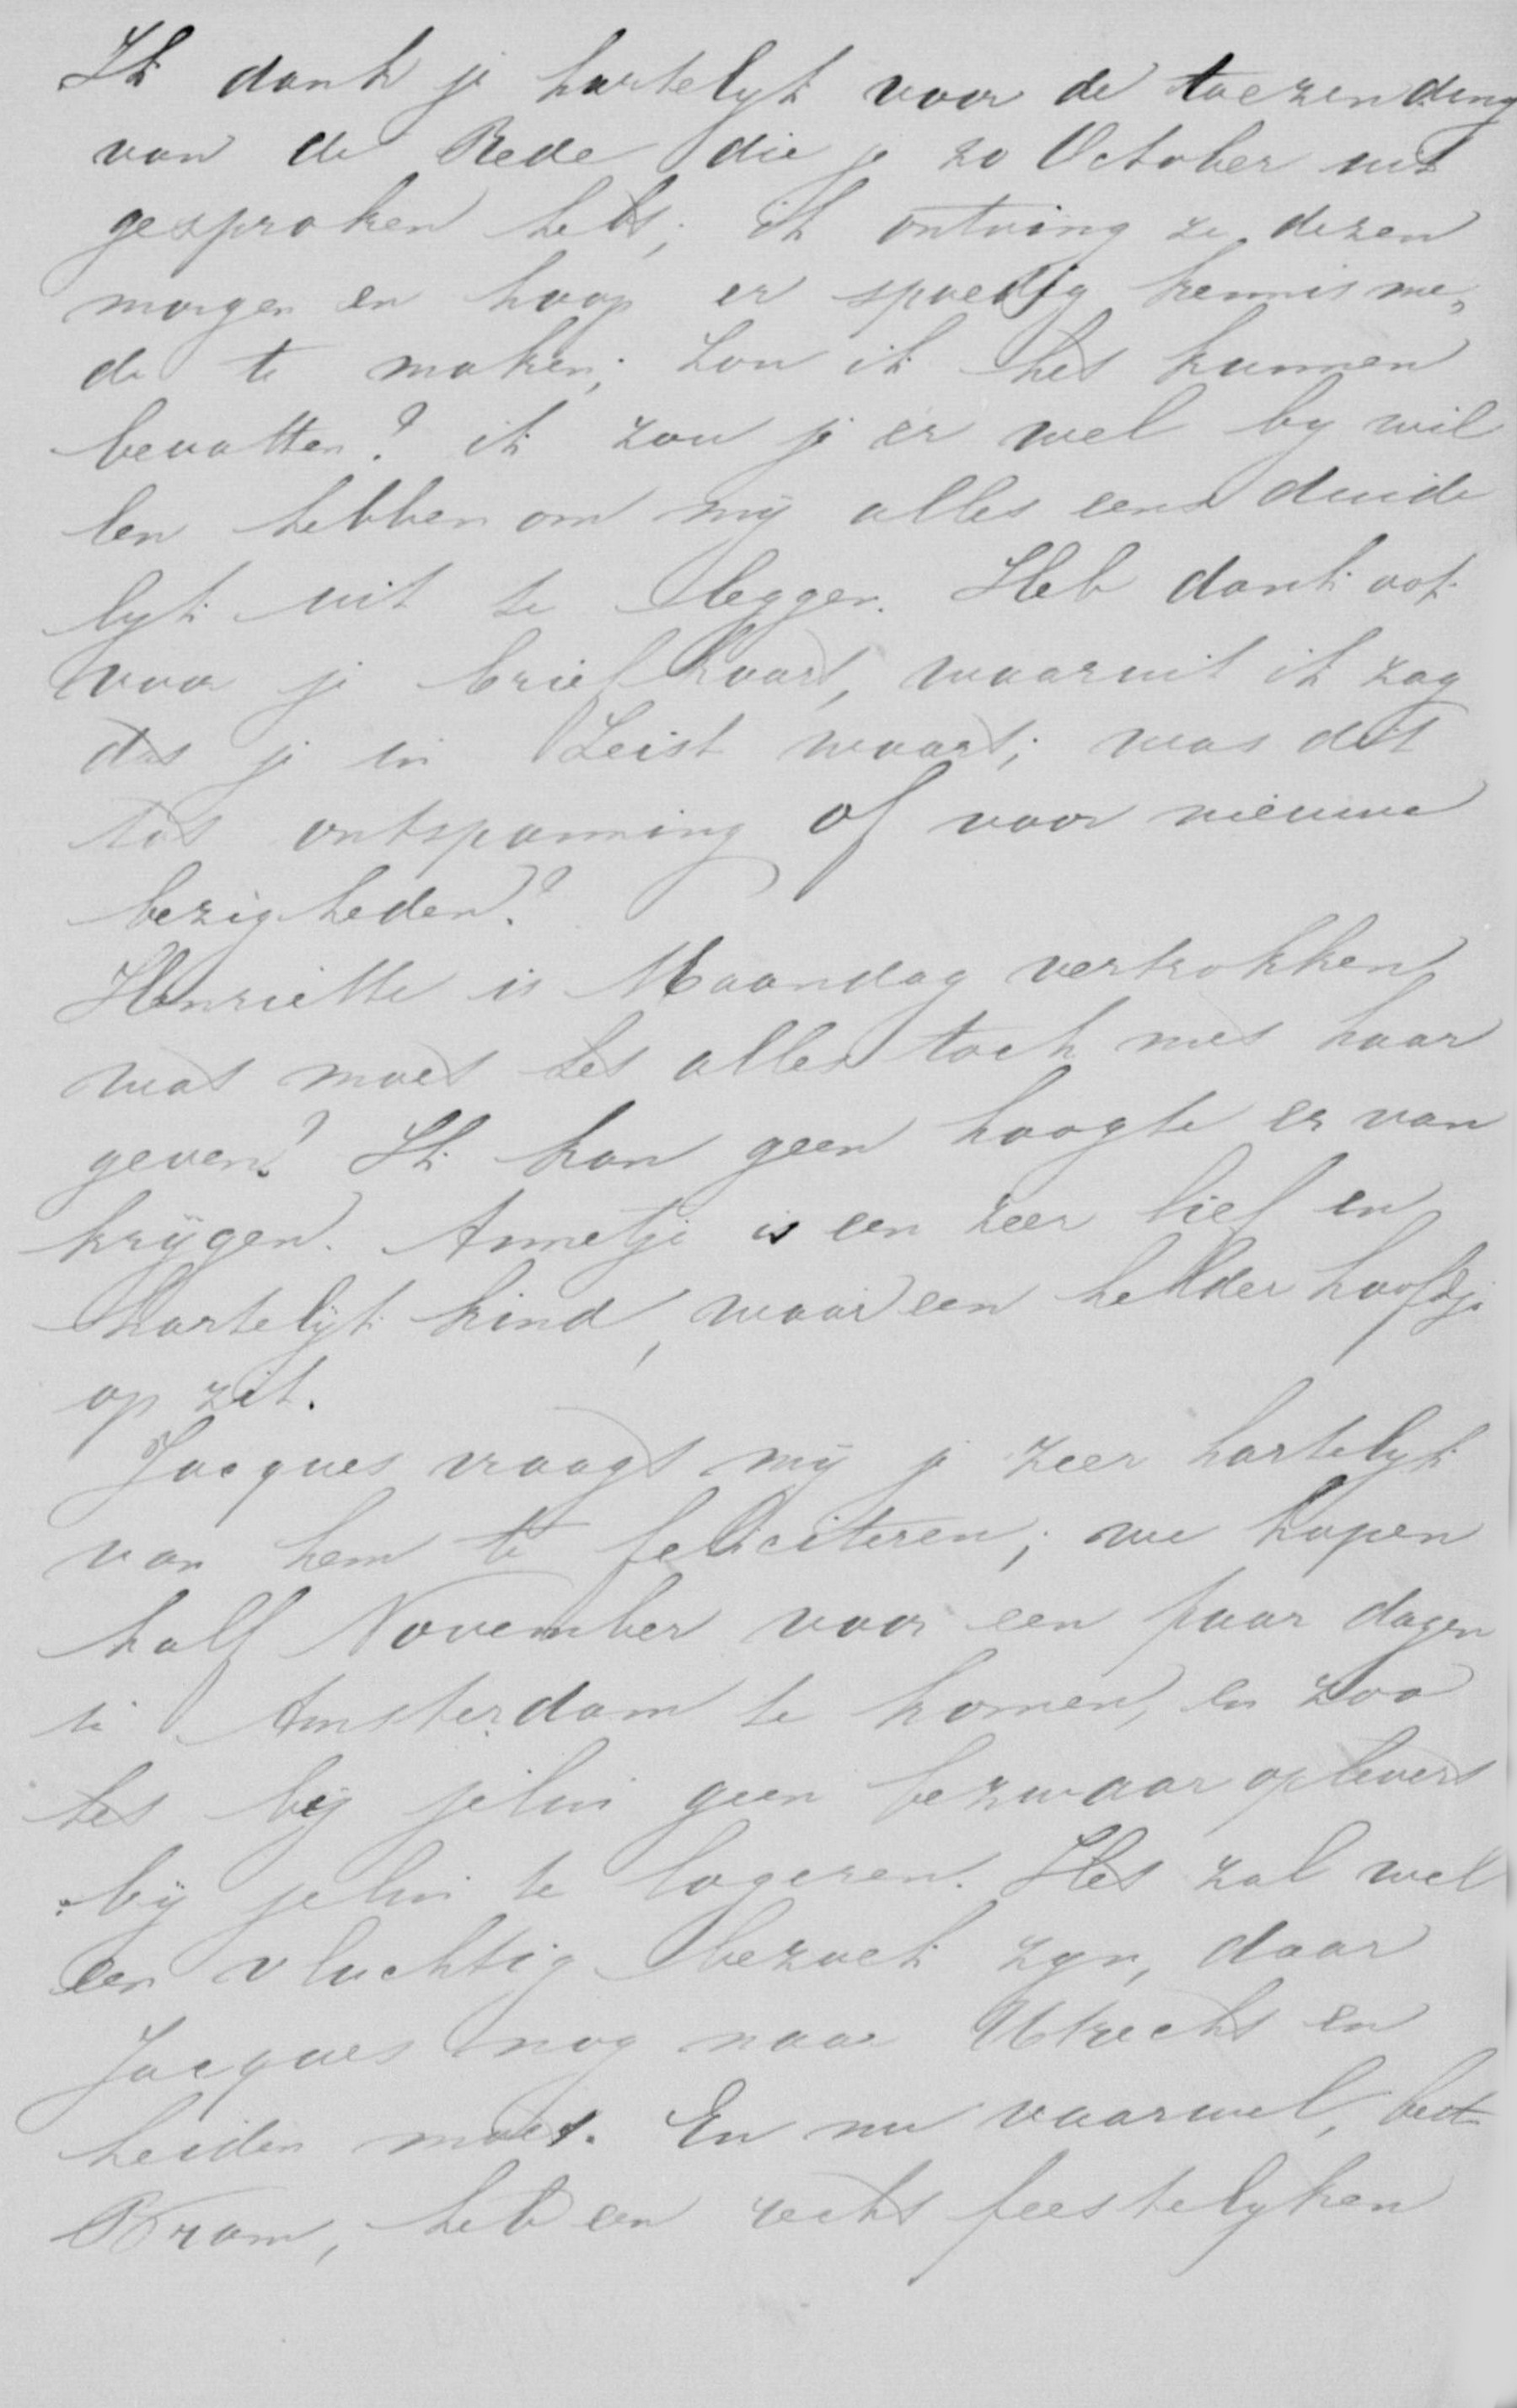 Ik dank je hartelyk voor de toezending
van de Rede die je 20 October uit
gesproken hebt; ik ontving ze dezen
morgen en hoop er spoedig kennis me„
de te maken; zou ik het kunnen
bevatten? ik zou je er wel by wil
len hebben om mij alles eens duide
lyk uit te leggen. Heb dank ook
voor je briefkaart, waaruit ik zag
dat je in Zeist waart; was dit
tot ontspanning of voor nieuwe
bezigheden?
Henriette is Maandag vertrokken
wat moet het alles toch met haar
geven? Ik kan geen hoogte er van
krijgen. Annetje is een zeer lief en
hartelijk kind, waar een helder hoofdje
op zit.
Jacques vraagt mij je zeer hartelyk
van hem te feliciteren; we hopen
half November voor een paar dagen
in Amsterdam te komen, en zoo
het bij jelui geen bezwaar oplevert
bij jelui te logeren. Het zal wel
een vluchtig bezoek zyn, daar
Jacques nog naar Utrecht en
Leiden moet. En nu vaarwel, beste
Bram, heb een recht feestelyken